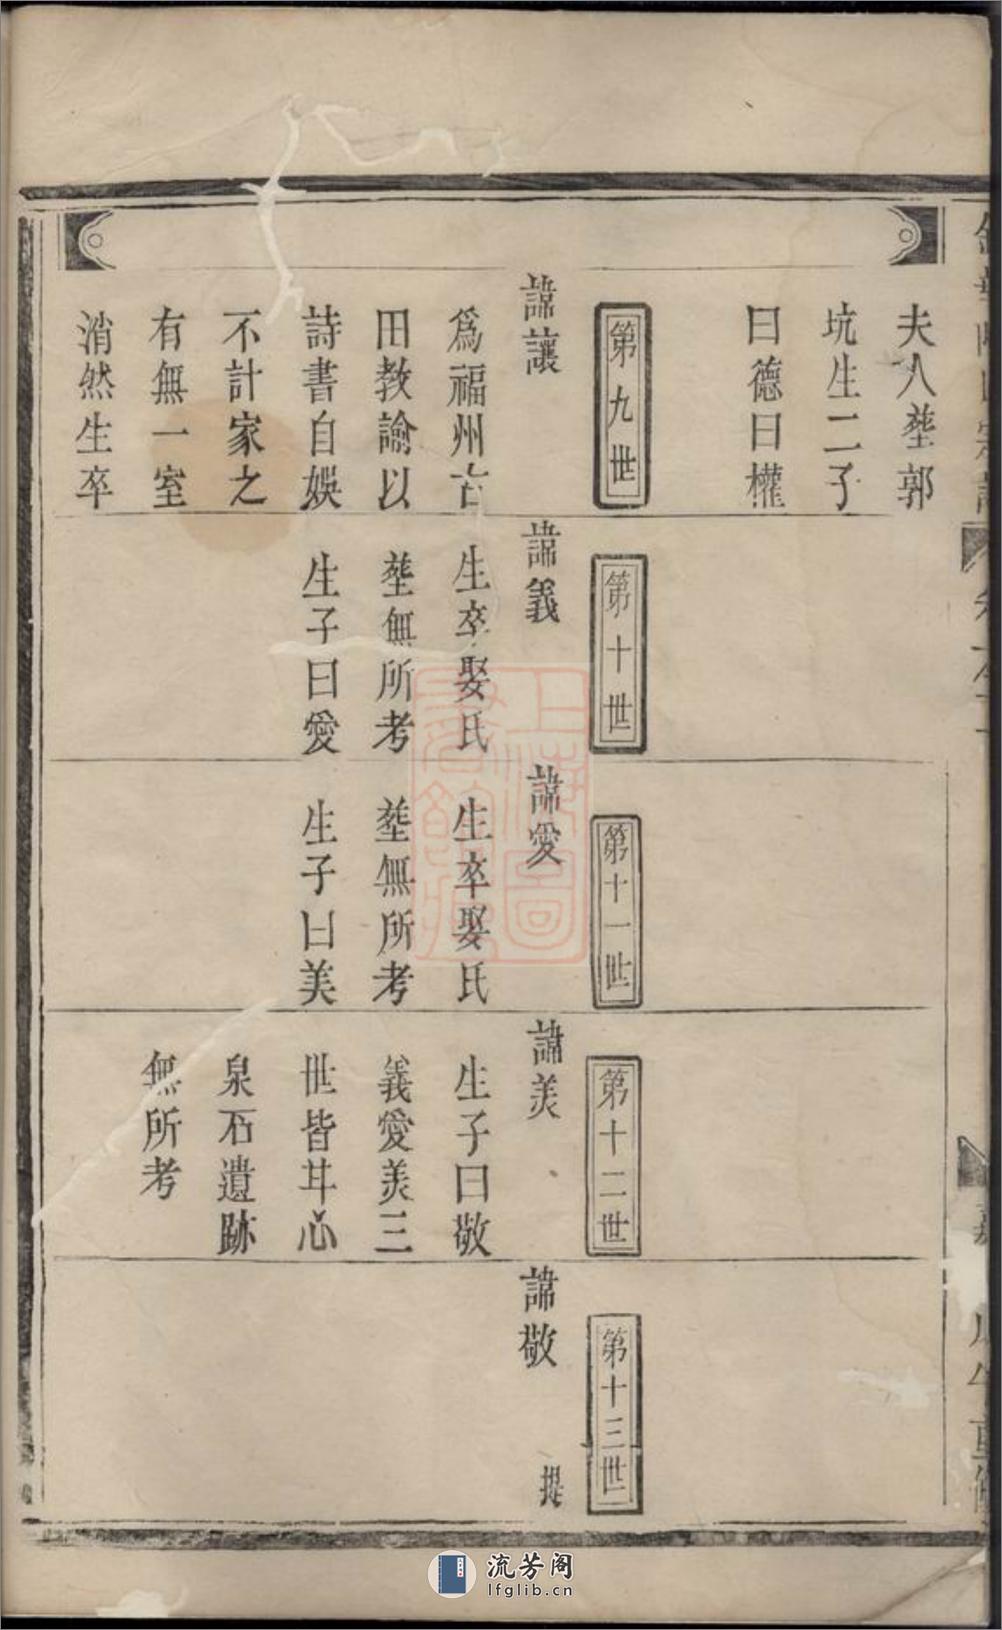 夫人塟郭
坑生二子
曰德曰權
第九世
諱讓
爲福州古
田教諭以
詩書自娛
不計家之
有無一室
消然生卒
第十世
諱義
生卒娶氏
塟無所考
生子曰愛
第十一世
諱愛
生卒娶氏
塟無所考
生子曰美
第十二世
諱羙
生子曰敬
義愛羙三
世皆甘心
泉石遺跡
無所考
第十三世
諱敬
提
上海圖
流芳阁
lfglib.cn